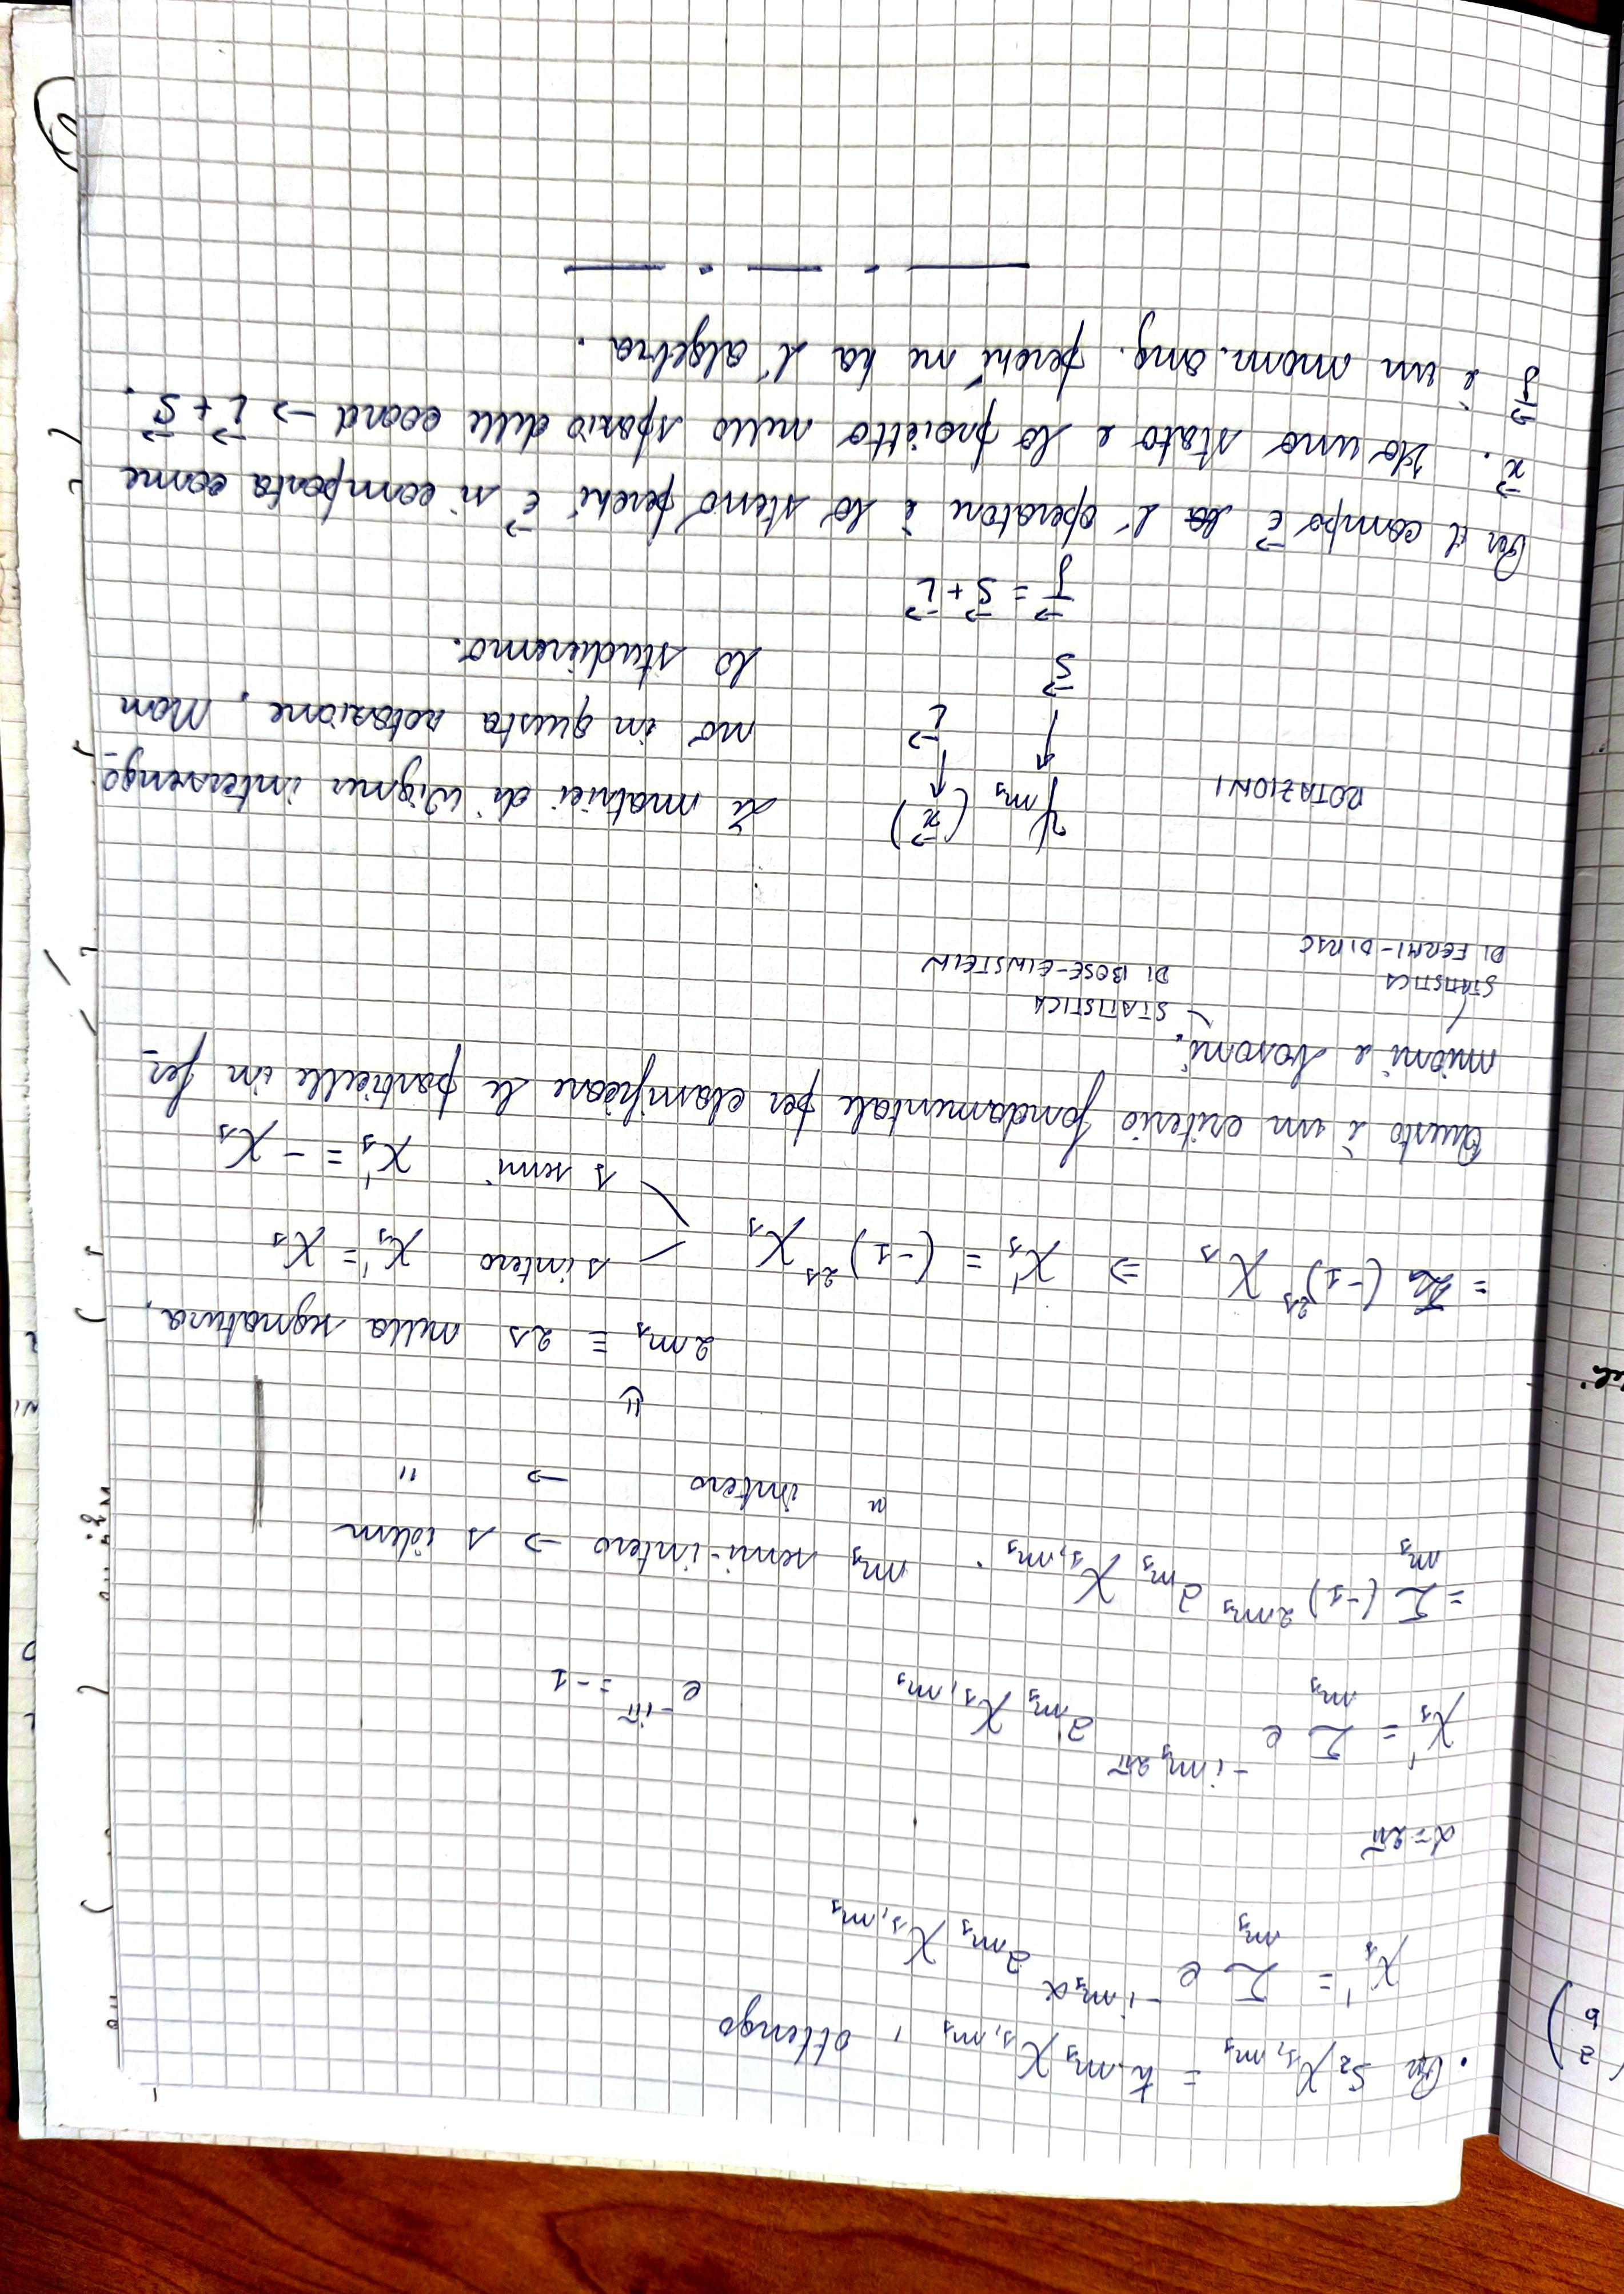 • Per S_z χ_{s,m_s} = ħ m_s χ_{s,m_s} , ottengo
χ'_s = Σ_{m_s} e^{-i m_s α} a_{m_s} χ_{s,m_s}
α = 2π
χ'_s = Σ_{m_s} e^{-i m_s 2π} a_{m_s} χ_{s,m_s} e^{-iπ} = -1
= Σ_{m_s} (-1)^{2m_s} a_{m_s} χ_{s,m_s} . m_s semi-intero → s idem
" intero → "
⇓
2m_s = 2s nella segnatura,
= (-1)^{2s} χ_s ⇒ χ'_s = (-1)^{2s} χ_s
s intero χ'_s = χ_s
s semi χ'_s = - χ_s
Questo è un criterio fondamentale per classificare le particelle in fer-
mioni e bosoni.
STATISTICA DI FERMI-DIRAC
STATISTICA DI BOSE-EINSTEIN
ROTAZIONI
ψ_{m_s} (x⃗)
↑ ↑
S⃗ L⃗
Le matrici di Wigner intervengo-
no in questa rotazione, Non
lo studieremo.
J⃗ = S⃗ + L⃗
Per il campo E⃗ l'operatore è lo stesso perché E⃗ si comporta come
x⃗. Ho uno stato e lo proietto nello spazio delle coord → L⃗ + S⃗.
J⃗ è un mom. ang. perché ne ha l'algebra.